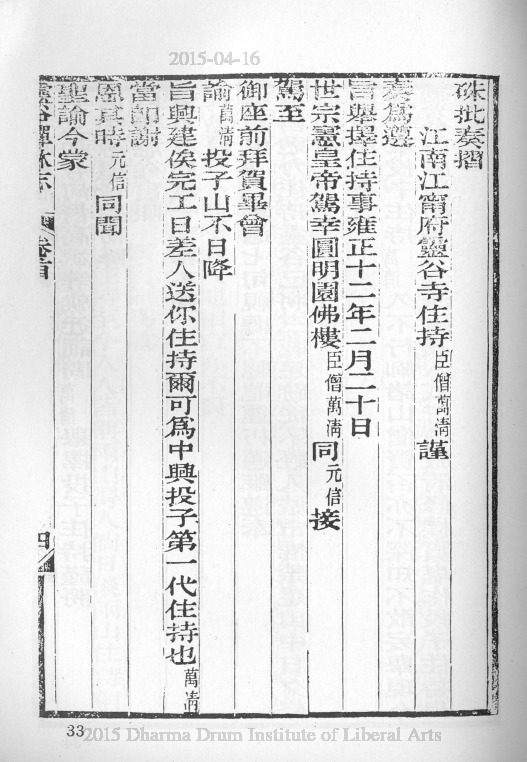 2015-04-16
硃批奏摺
江南江甯府靈谷寺住持臣僧萬淸謹
奏爲遵
旨舉擇住持事雍正十二年二月二十日
世宗憲皇帝駕幸圓明園佛樓臣僧萬淸同元信接
駕至
御座前拜賀畢會
諭萬淸投子山不日降
旨興建俟完工日差人送你住持爾可爲中興投子第一代住持也萬淸
當卽謝
恩其時元信同聞
聖諭今蒙
靈谷禪林志 卷首 四
33
2015 Dharma Drum Institute of Liberal Arts